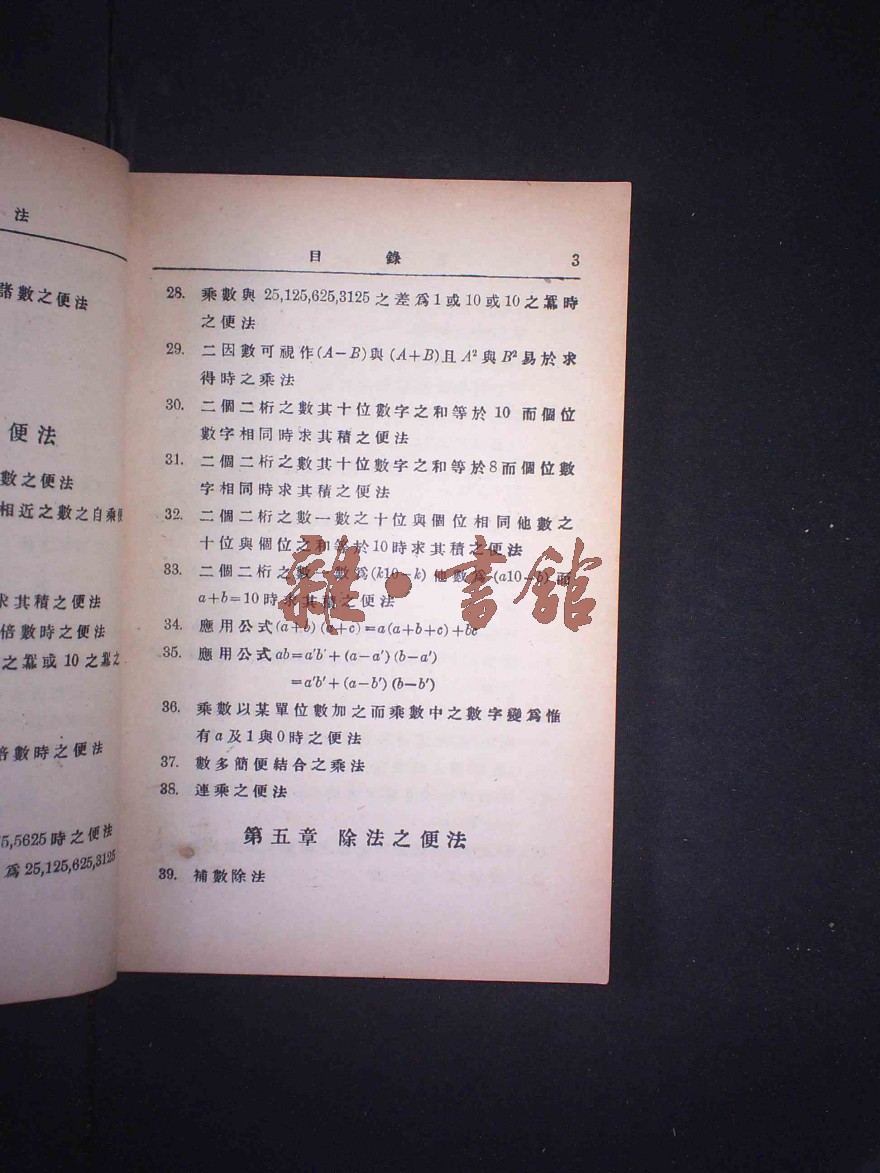 法
諸數之便法
便法
數之便法
相近之數之自乘便
求其積之便法
倍數時之便法
之冪或10之冪之
倍數時之便法
75,5625時之便法
爲25,125,625,3125
目錄 3
28. 乘數與 25,125,625,3125之差爲1或10或10之冪時
之便法
29. 二因數可視作(A−B)與(A+B)且A²與B²易於求
得時之乘法
30. 二個二桁之數其十位數字之和等於10而個位
數字相同時求其積之便法
31. 二個二桁之數其十位數字之和等於8而個位數
字相同時求其積之便法
32. 二個二桁之數一數之十位與個位相同他數之
十位與個位之和等於10時求其積之便法
33. 二個二桁之數一數爲(k10−k)他數爲(a10−b)而
a+b=10時求其積之便法
34. 應用公式(a+b)(a+c)=a(a+b+c)+bc
35. 應用公式ab=a'b'+(a−a')(b−a')
=a'b'+(a−b')(b−b')
36. 乘數以某單位數加之而乘數中之數字變爲惟
有a及1與0時之便法
37. 數多簡便結合之乘法
38. 連乘之便法
第五章 除法之便法
39. 補數除法
雜·書館